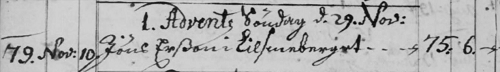 1. Advents Söndag d. 29. Nov:
79. Nov: 10. Jöns Ersson i - - 75: 6.